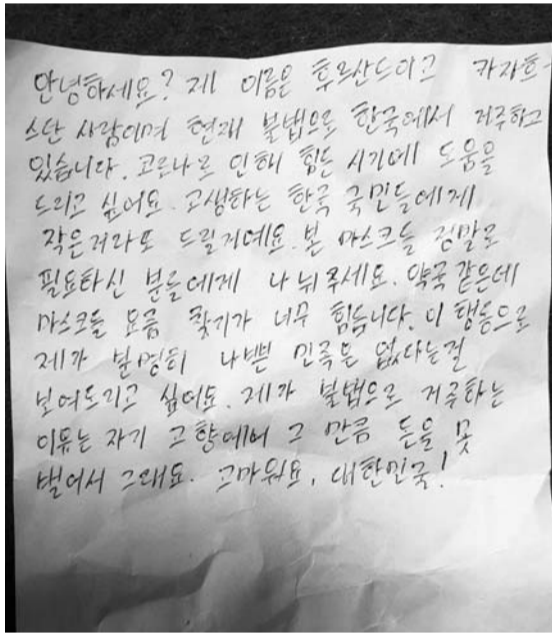 안녕하세요? 제 이름은 후르산드이고 카자흐-
스단 사람이며 현재 불법으로 한국에서 거주하고
있습니다. 코로나로 인해 힘든 시기에 도움을
드리고 싶어요. 고생하는 한국 국민들에게
작은거라도 드릴거예요. 본 마스크들 정말로
필요하신 분들에게 나눠주세요. 약국 같은데
마스크들 요즘 찾기가 너무 힘듭니다. 이 행동으로
제가 분명히 나쁜 민족은 없다는걸
보여드리고 싶어요. 제가 불법으로 거주하는
이유는 자기 고향에서 그 만큼 돈을 못
벌어서 그래요. 고마워요, 대한민국!